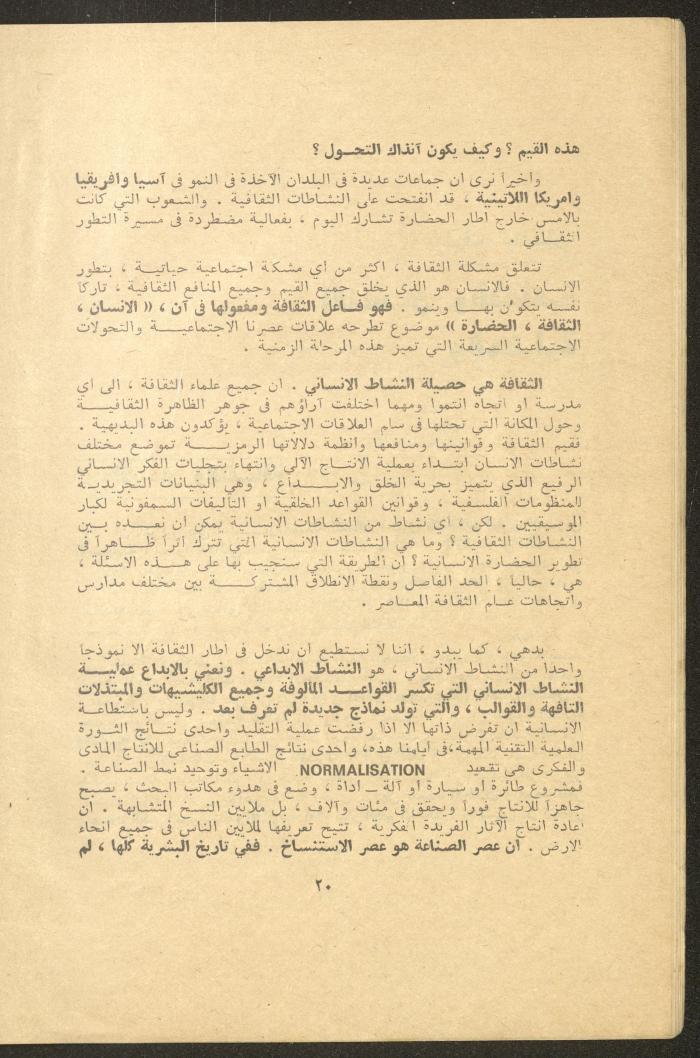 هذه القيم ؟ وكيف يكون آنذاك التحـول ؟
واخيرا نرى ان جماعات عديدة في البلدان الآخذة في النمو في آسيا وافريقيا
وامريكا اللاتينية ، قد انفتحت على النشاطات الثقافية . والشعوب التي كانت
بالامس خارج اطار الحضارة تشارك اليوم ، بفعالية مضطردة في مسيرة التطور
الثقـافي .
تتعلق مشكلة الثقافة ، اكثر من اي مشكلة اجتماعية حياتيـة ، بتطور
الانسان . فالانسان هو الذي يخلق جميع القيم وجميع المنافع الثقافية ، تاركا
نفسه يتكوّن بهـا وينمو . فهو فـاعل الثقافة ومفعولها في آن ، « الانسان ،
الثقافة ، الحضارة » موضوع تطرحه علاقات عصرنا الاجتماعيـة والتحولات
الاجتماعية السريعة التي تميز هذه المرحلة الزمنية .
الثقافة هي حصيلة النشاط الانساني . ان جميع علماء الثقافة ، الى اي
مدرسة او اتجاه انتموا ومهما اختلفت آراؤهم في جوهر الظاهرة الثقافيـة
وحول المكانة التي تحتلها في سلم العلاقات الاجتماعية ، يؤكدون هذه البديهية .
فقيم الثقافة وقوانينها ومنافعها وانظمة دلالاتها الرمزيـة تموضع مختلف
نشاطات الانسان ابتـداء بعملية الانتـاج الآلي وانتهاء بتجليات الفكر الانساني
الرفيع الذي يتميز بحرية الخلق والابـداع ، وهي البنيانات التجريديـة
للمنظومات الفلسفية ، وقوانين القواعد الخلقية او التأليفات السمفونية لكبار
الموسيقيين . لكن ، اي نشاط من النشاطات الانسانية يمكن ان نعـده بـين
النشاطات الثقافية ؟ وما هي النشاطات الانسانية التي تترك اثراً ظـاهراً في
تطوير الحضارة الانسانية ؟ ان الطريقة التي سنجيب بها على هـذه الاسئلة ،
هي ، حاليا ، الحد الفاصل ونقطة الانطلاق المشتركـة بين مختلف مدارس
واتجاهات علـم الثقافة المعاصر .
بدهي ، كما يبدو ، اننا لا نستطيع ان ندخل في اطار الثقافة الا نموذجا
واحدا من النشاط الانساني ، هو النشاط الابداعي . ونعني بالابداع عمليـة
النشاط الانساني التي تكسر القواعـد المألوفة وجميع الكليشيهات والمبتذلات
التافهة والقوالب ، والتي تولد نماذج جديدة لم تعرف بعد . وليس باستطاعـة
الانسانية ان تفرض ذاتها الا اذا رفضت عملية التقليد واحدى نتـائج الثـورة
العلمية التقنية المهمة،في ايامنا هذه، واحدى نتائج الطابع الصناعي للانتاج المادي
والفكري هي تقعيد NORMALISATION الاشياء وتوحيد نمط الصناعة .
فمشروع طائرة او سيارة او آلة ــ اداة ، وضع في هدوء مكاتب البحث ، يصبح
جاهزاً للانتاج فوراً ويحقق في مئات وآلاف ، بل ملايين النسخ المتشابهة . ان
اعادة انتاج الآثار الفريدة الفكرية ، تتيح تعريفها لملايين الناس في جميع انحاء
الارض . ان عصر الصناعة هو عصر الاستنساخ . ففي تاريخ البشرية كلها ، لم
٢٠